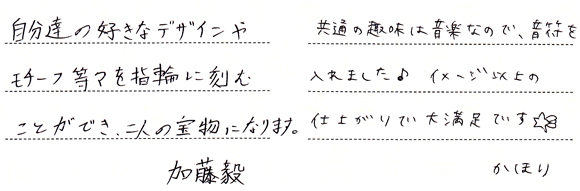 自分達の好きなデザインや
モチーフ等々を指輪に刻む
ことができ、二人の宝物になります。
加藤毅
共通の趣味は音楽なので、音符を
入れました♪ イメージ以上の
仕上がりで大満足です☆彡
かほり